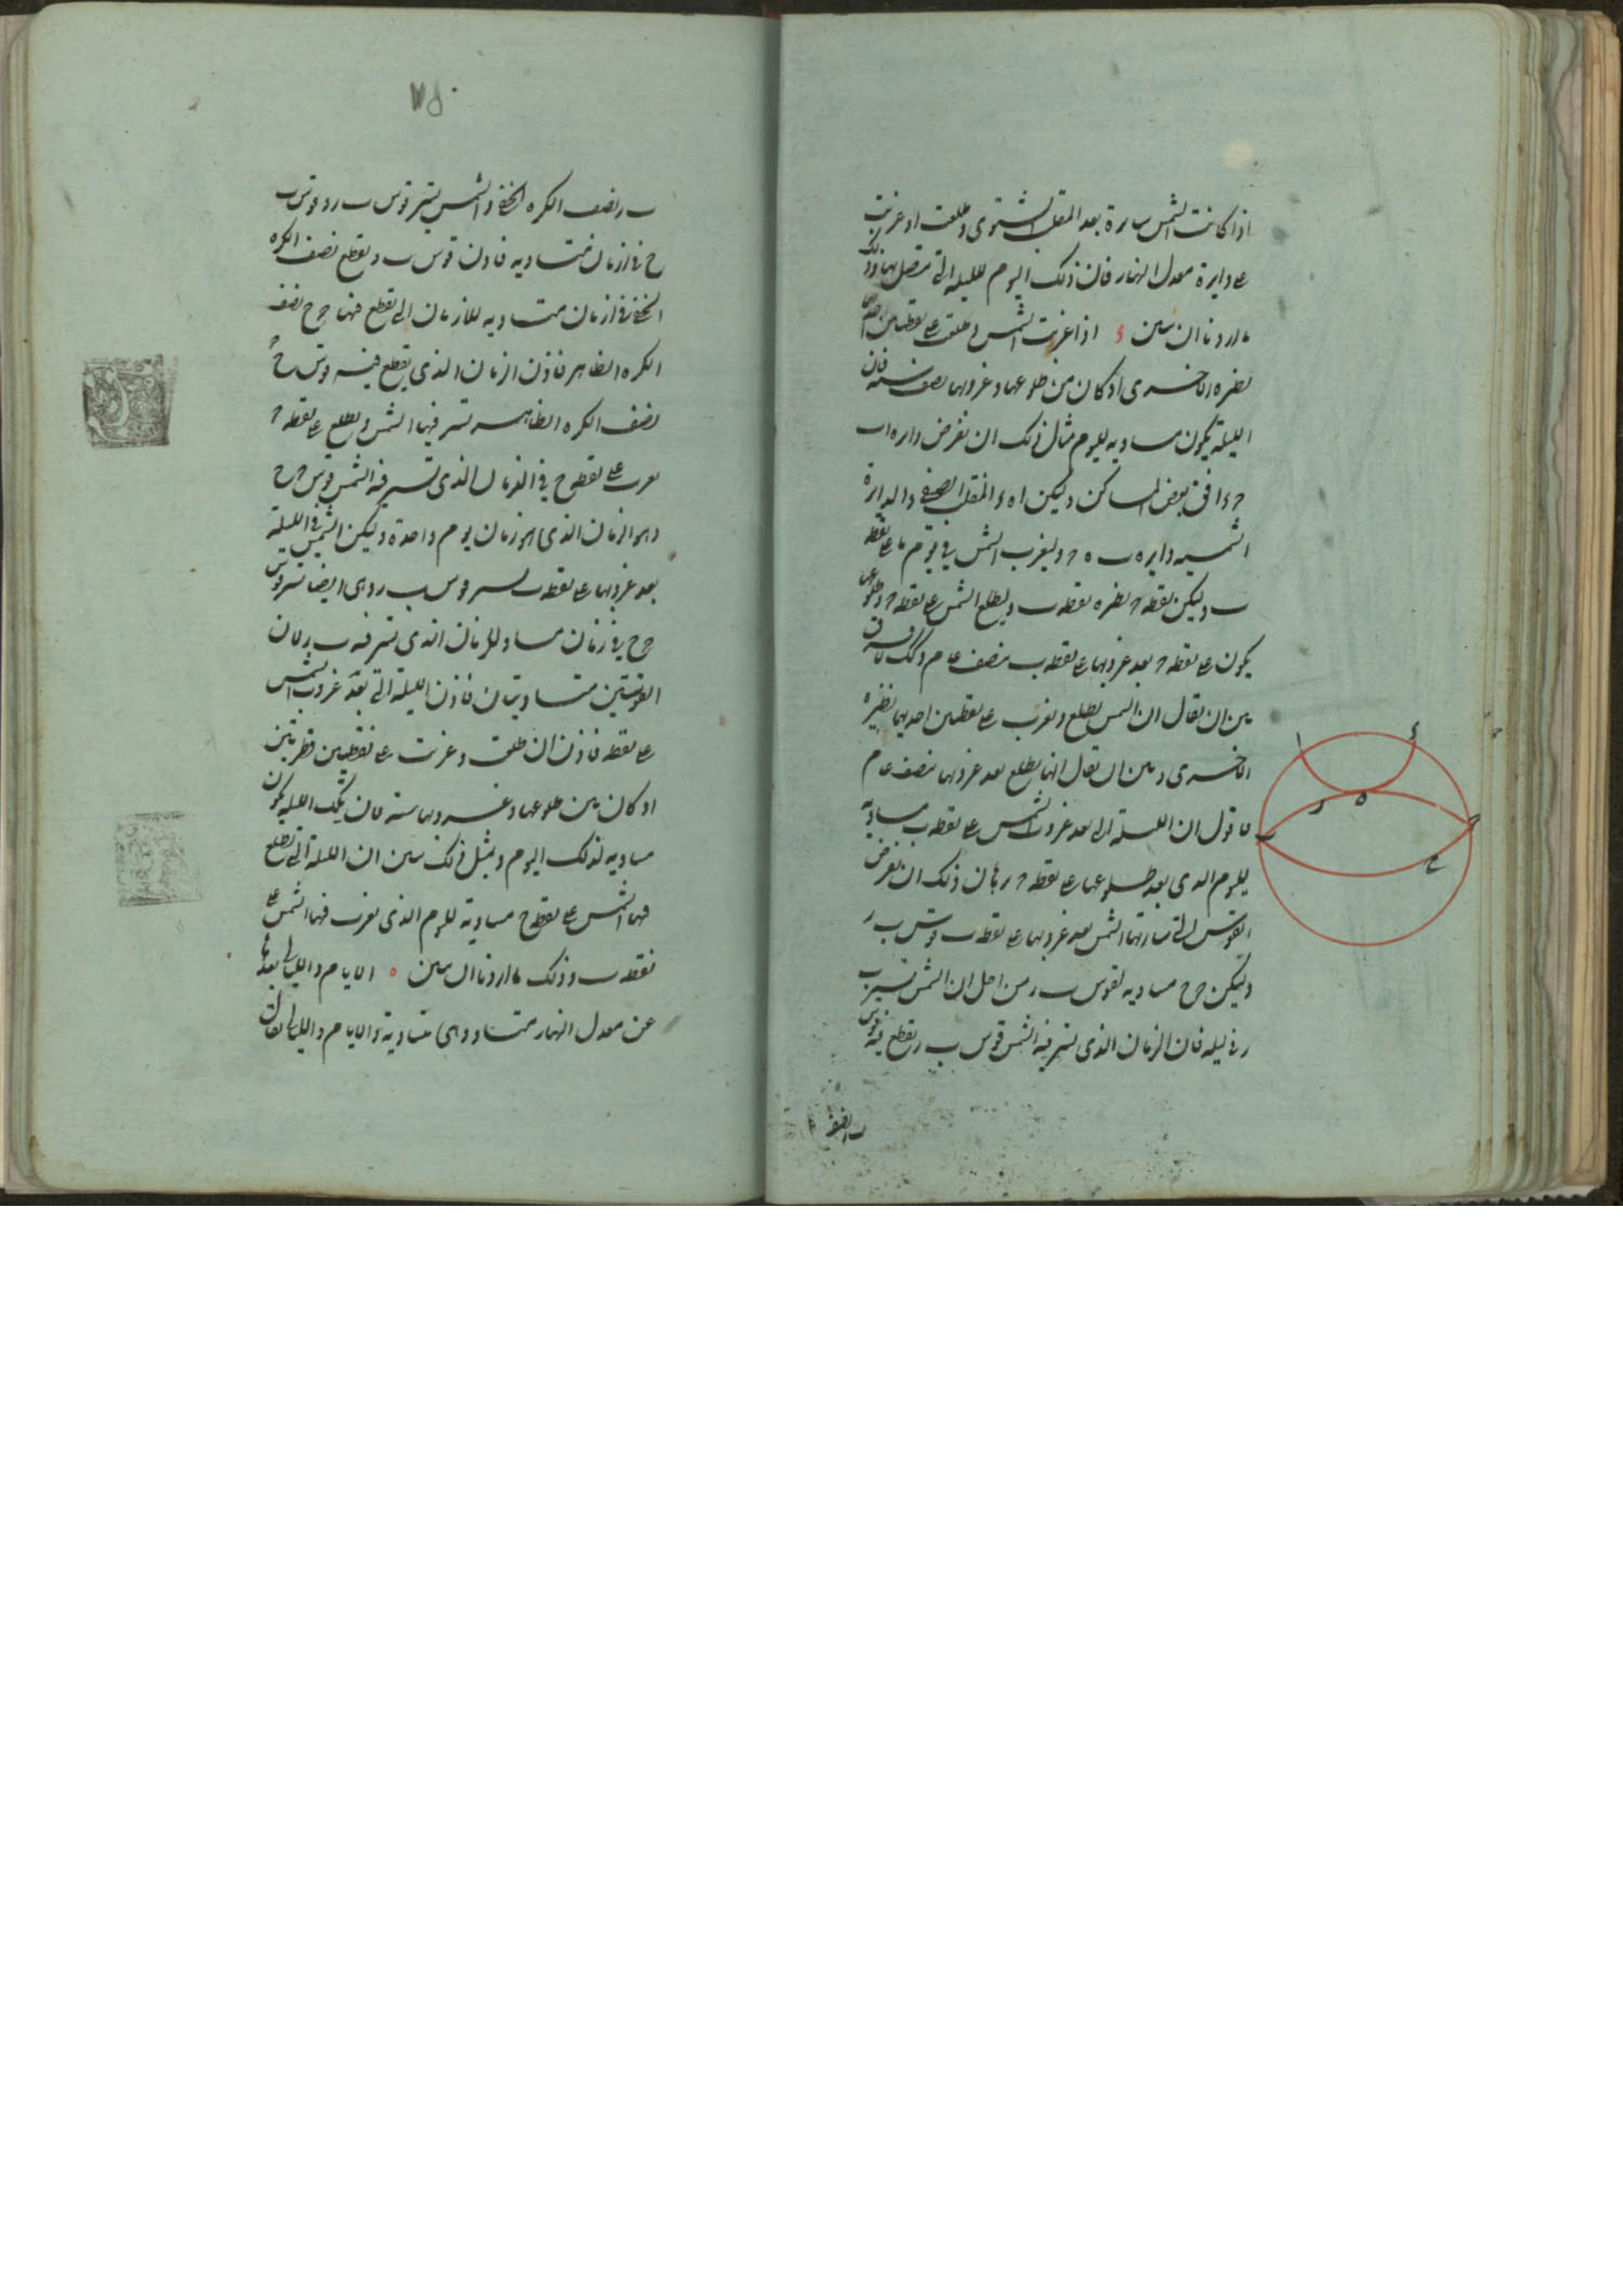 اذا كانت الشمس سايرة بعد المنقلب الشتوى وطلعت او غربت
على دايرة معدل النهار فان ذلك اليوم لليلة التى تتصل بها وذلك
ما اردنا ان نبين د اذا غربت الشمس وطلعت على نقطتين احديهما
نظيره الاخرى او كان بين طلوعها وغروبها نصف سنة فان
الليلة يكون مساويه لليوم مثال ذلك ان نفرض دايره ا ب
ح د افق بعض المساكن وليكن ا ه د المنقلب الصيفى والدايرة
الشمسيه دايره ب ه ح وليغرب الشمس فى يوم ما على نقطه
ب وليكن نقطه ح نظيره نقطه ب وليطلع الشمس على نقطه ح وطلوعها
يكون على نقطه ح بعد غروبها على نقطه ب بنصف عام وذلك لا فرق
بين ان يقال ان الشمس يطلع ويغرب على نقطتين احديهما نظيره
الاخرى وبين ان يقال انها يطلع بعد غروبها بنصف عام
فاقول ان الليلة التى بعد غروب الشمس على نقطه ب مساويه
لليوم الذى بعد طلوعها على نقطه ح برهان ذلك ان نفرض
القوس التى سارتها الشمس بعد غروبها على نقطه ب قوس ب ر
وليكن ح ح مساويه لقوس ب ر من اجل ان الشمس تسير ب
ر فى ليله فان الزمان الذى تسير فيه الشمس قوس ب ر يقطع فيه قوس
ب ر نصف
ا
د
ر
ه
ح
ب
ح
٧٥٠
ب ر نصف الكره الخفى والشمس تسير قوس ب ر وقوس
ح ح فى ازمان متساويه فاذن قوس ب ر يقطع نصف الكره
الخفى فى ازمان متساويه للازمان التى يقطع فيها ح ح نصف
الكره الظاهر فاذن الزمان الذى يقطع فيه قوس ح ح
نصف الكره الظاهر تسير فيها الشمس ويطلع على نقطه ح
يغرب على نقطه ح فى الزمان الذى تسير فيه الشمس قوس ح ح
وهو الزمان الذى هو زمان يوم واحدة وليكن الشمس فى الليلة
بعد غروبها على نقطه ب تسير قوس ب ر وهى ايضا تسير قوس
ح ح فى زمان مساو للزمان الذى تسير فيه ب ر لان
القوسين متساويتان فاذن الليلة التى بعد غروب الشمس
على نقطه فاذن ان طلعت وغربت على نقطتين قطريتين
او كان بين طلوعها وغروبها ستة فان تلك الليله يكون
مساويه لذلك اليوم وبمثل ذلك نبين ان الليلة التى تطلع
فيها الشمس على نقطه ح مساوية لليوم الذى يغرب فيها الشمس على
نقطه ب وذلك ما اردنا ان نبين ه الايام والليالى بعدها
عن معدل النهار متساو وهى متساوية والايام والليالى